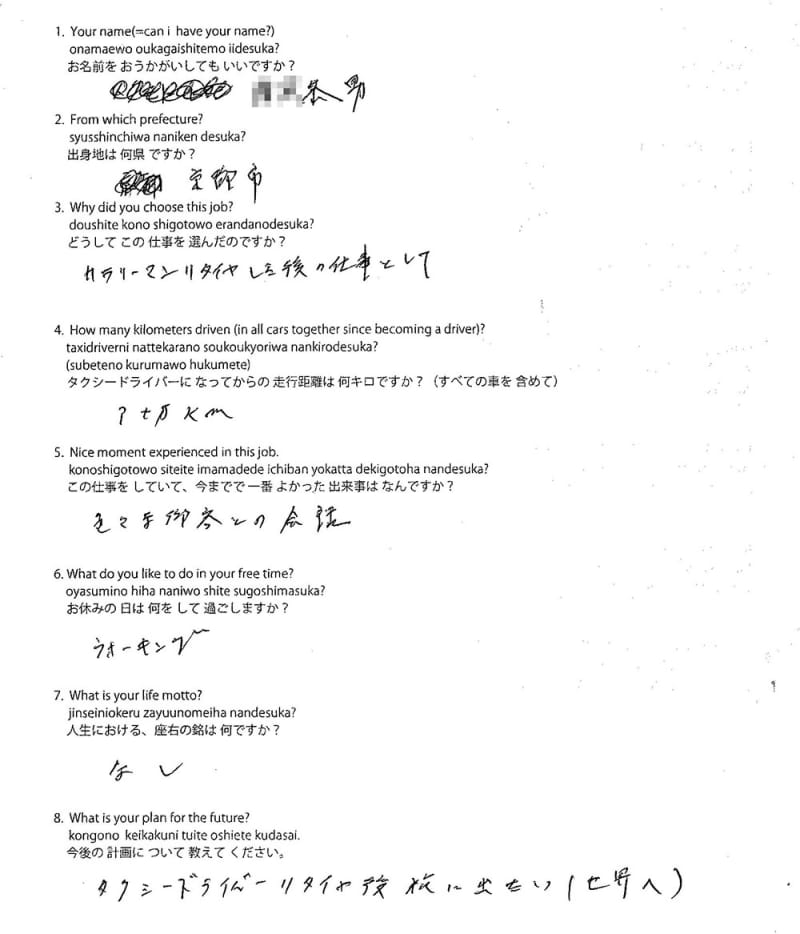 1. Your name(=can i have your name?)
onamaewo oukagaishitemo iidesuka?
お名前を おうかがいしても いいですか？
恭男
2. From which prefecture?
syusshinchiwa naniken desuka?
出身地は 何県 ですか？
京都市
3. Why did you choose this job?
doushite kono shigotowo erandanodesuka?
どうして この 仕事を 選んだのですか？
サラリーマンリタイヤした後の仕事として
4. How many kilometers driven (in all cars together since becoming a driver)?
taxidriverni nattekarano soukoukyoriwa nankirodesuka?
(subeteno kurumawo hukumete)
タクシードライバーに なってからの 走行距離は 何キロですか？（すべての車を 含めて）
十万Km
5. Nice moment experienced in this job.
konoshigotowo siteite imamadede ichiban yokatta dekigotoha nandesuka?
この仕事を していて、今までで 一番 よかった 出来事は なんですか？
色々な御客との会話
6. What do you like to do in your free time?
oyasumino hiha naniwo shite sugoshimasuka?
お休みの 日は 何を して 過ごしますか？
ウォーキング
7. What is your life motto?
jinseiniokeru zayuunomeiha nandesuka?
人生における、座右の銘は 何ですか？
なし
8. What is your plan for the future?
kongono keikakuni tuite oshiete kudasai.
今後の 計画に ついて 教えて ください。
タクシードライバーリタイヤ後 旅に出たい(世界へ)